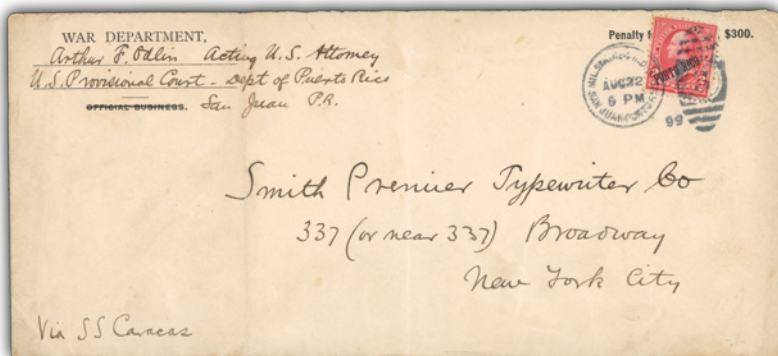 WAR DEPARTMENT,
Arthur F. Odlin Acting U.S. Attorney
U.S. Provisional Court - Dept of Puerto Rico
OFFICIAL BUSINESS. San Juan P.R.
Penalty $300.
PORTO RICO
MIL. SAN JUAN PORTO RICO
AUG 22
6 PM
99
Smith Premier Typewriter Co
337 (or near 337) Broadway
New York City
Via SS Caracas